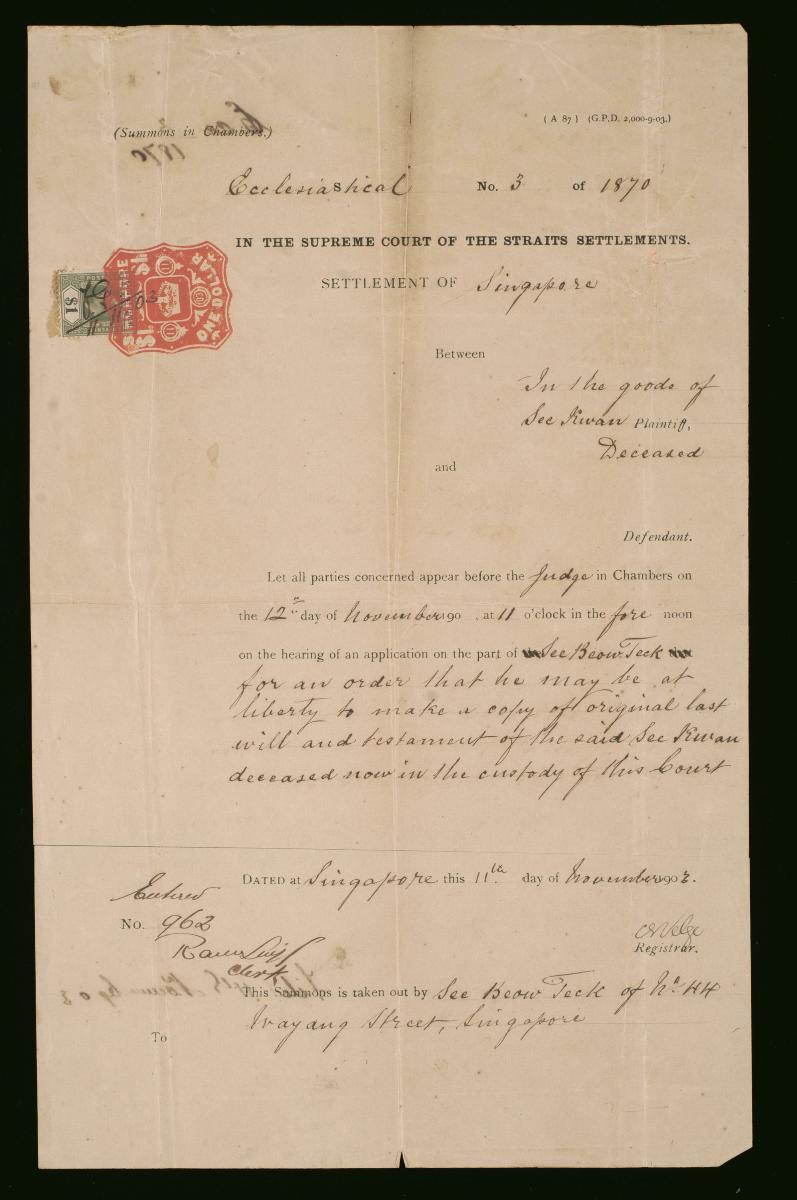 (Summons in Chambers.)
( A 87 ) (G.P.D. 2,000-9-03.)
Ecclesiastical No. 3 of 1870
IN THE SUPREME COURT OF THE STRAITS SETTLEMENTS.
SETTLEMENT OF Singapore
$1
ONE DOLLAR
Between
In the goods of
See Kwan Plaintiff,
Deceased
and
Defendant.
Let all parties concerned appear before the Judge in Chambers on
the 12th day of November 190 , at 11 o'clock in the fore noon
on the hearing of an application on the part of See Beow Teck
for an order that he may be at
liberty to make a copy of original last
will and testament of the said See Kwan
deceased now in the custody of this Court
DATED at Singapore this 11th day of November 1903.
Entered
No. 962
Clerk
Registrar.
This Summons is taken out by See Beow Teck of No. 44
Wayang Street, Singapore
To